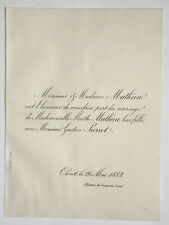 Monsieur & Madame Mathieu
ont l'honneur de vous faire part du mariage
de Mademoiselle Berthe Mathieu, leur fille,
avec Monsieur Gustave Pierret.
le 26 Mai 1883